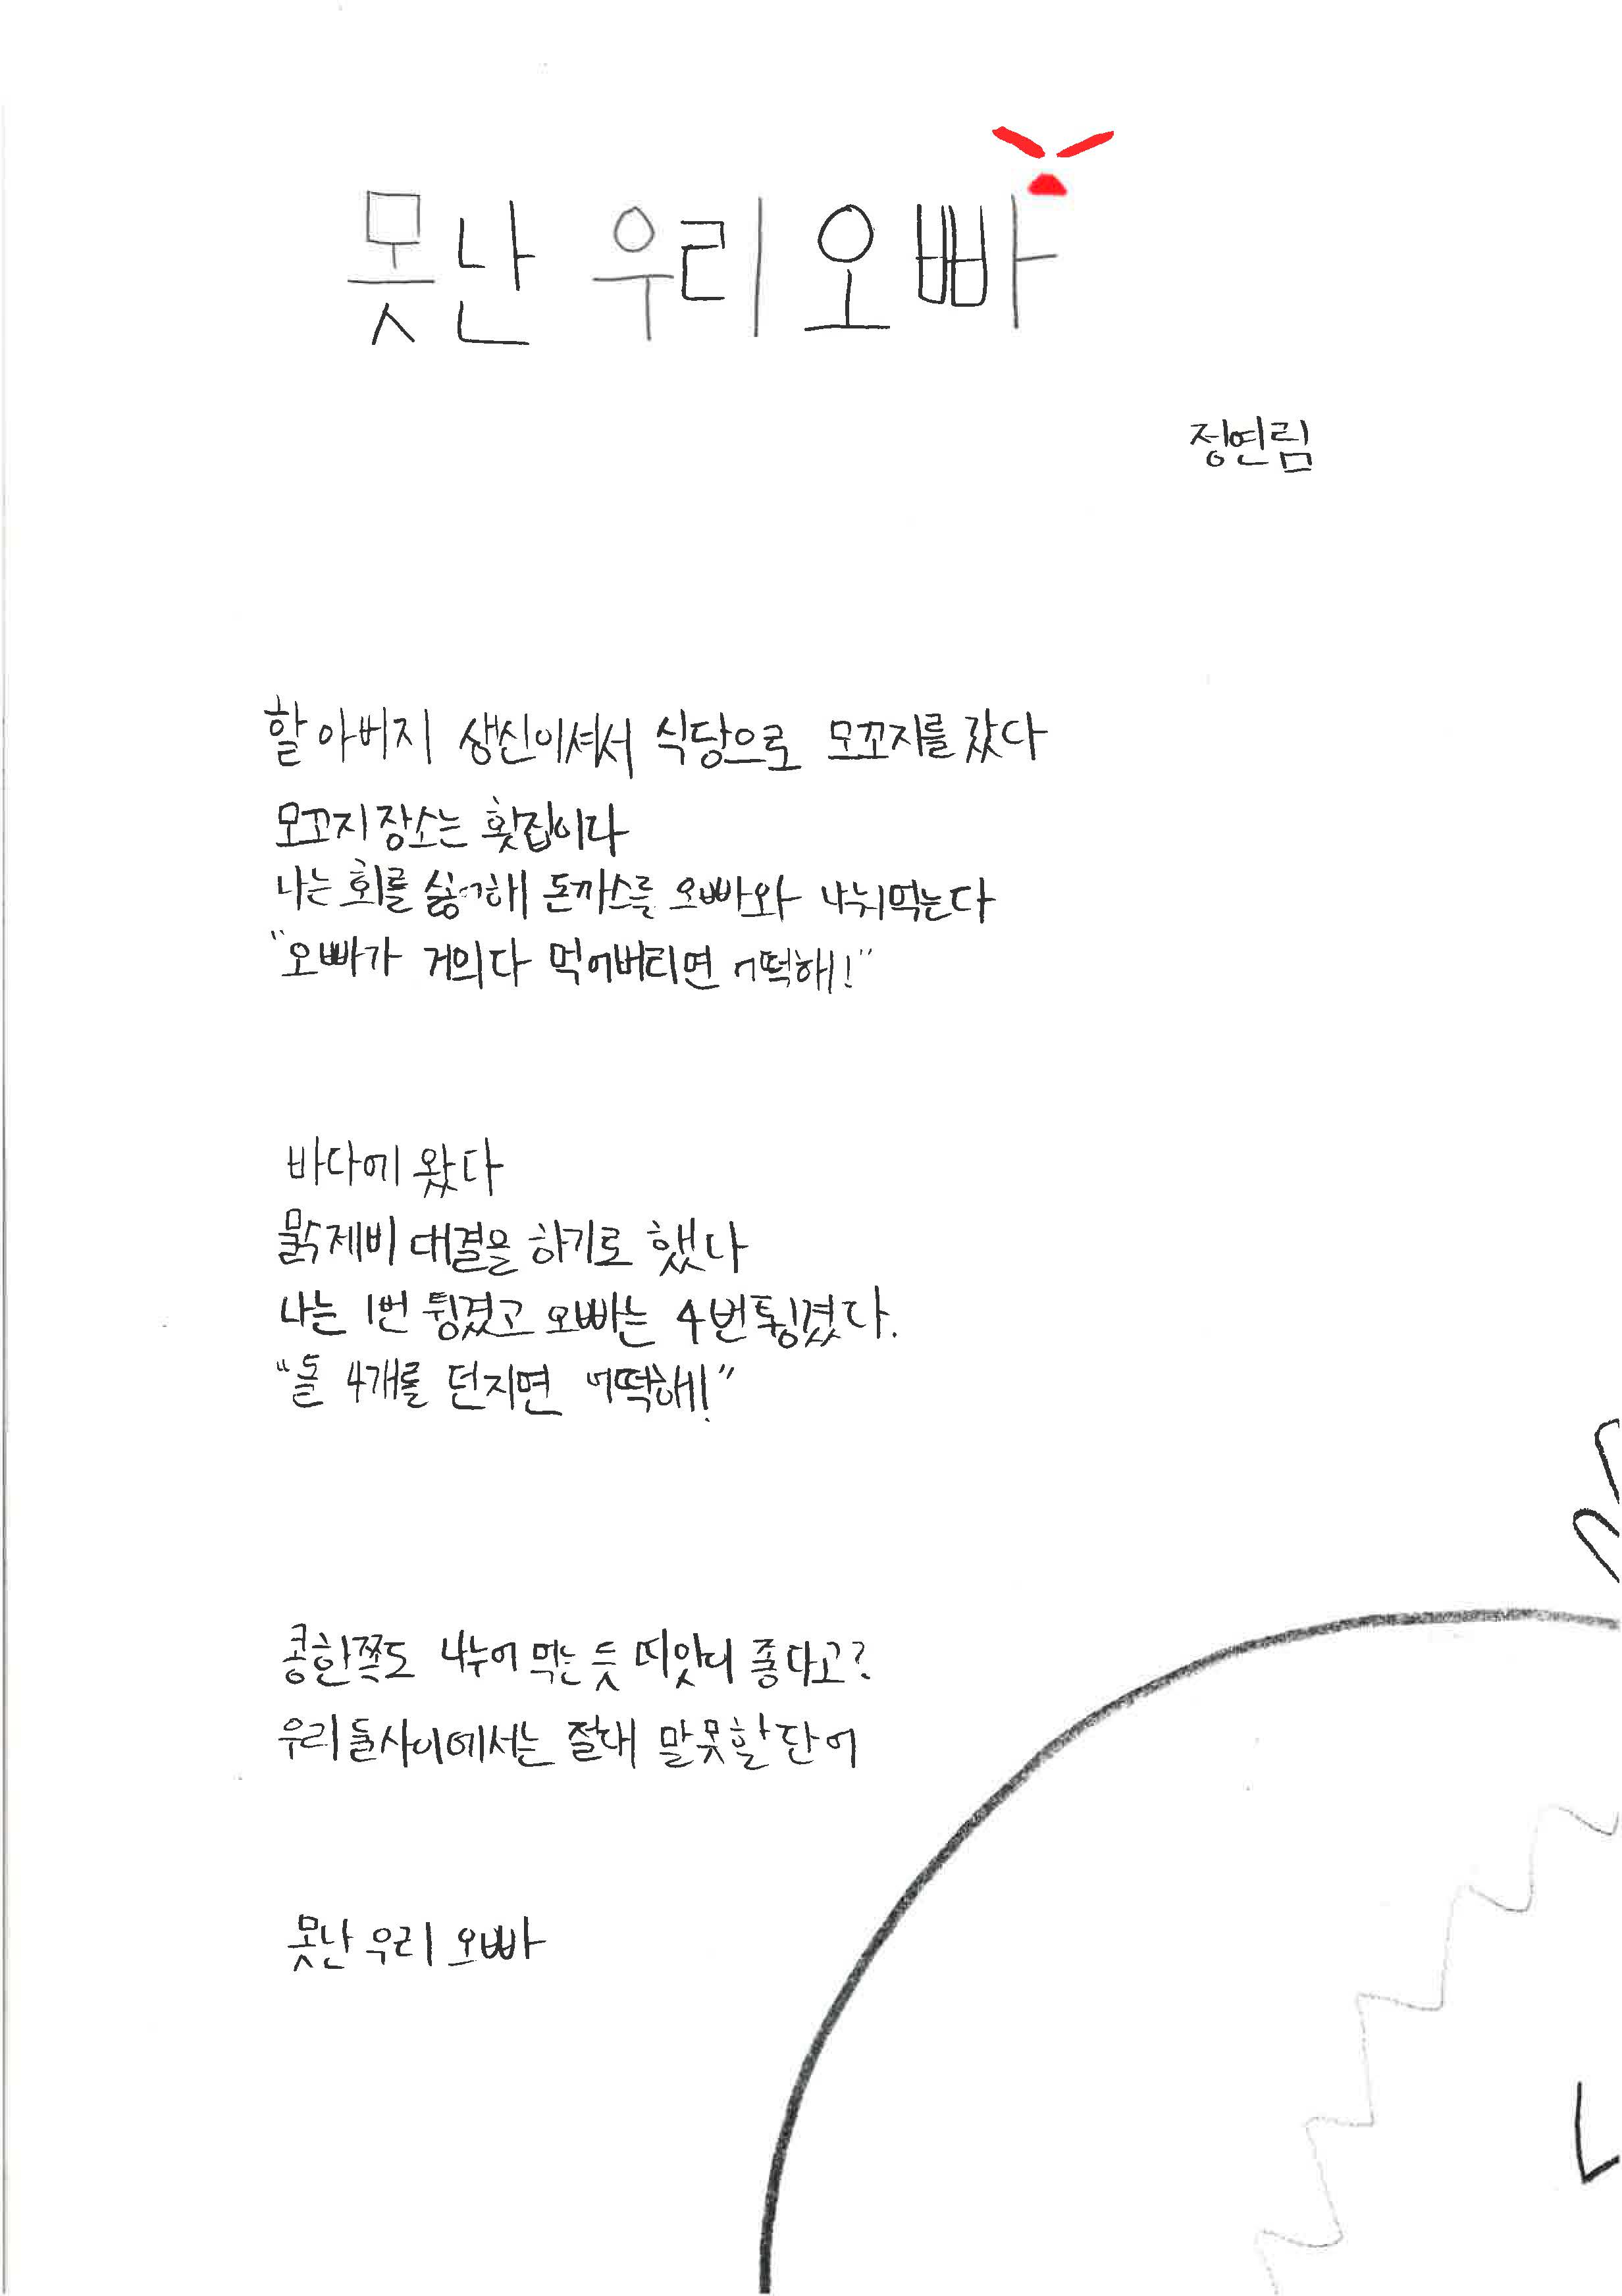 못난 우리 오빠
정연림
할아버지 생신이셔서 식당으로 모꼬지를 갔다
모꼬지장소는 횟집이다
나는 회를 싫어해 돈까스를 오빠와 나눠먹는다
"오빠가 거의다 먹어버리면 어떡해!"
바다에 왔다
물수제비 대결을 하기로 했다
나는 1번 튕겼고 오빠는 4번튕겼다.
"돌 4개를 던지면 어떡해!"
콩한쪽도 나누어 먹는 듯 띠앗머리 좋다고?
우리 둘사이에서는 절대 말못할단어
못난 우리 오빠